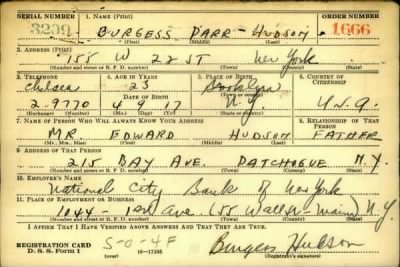 SERIAL NUMBER 1. NAME (Print) ORDER NUMBER
3209 BURGESS PARR - HUDSON 1666
(First) (Middle) (Last)
2. ADDRESS (Print)
155 W 22 ST New York
(Number and street or R. F. D. number) (Town) (County) (State)
3. TELEPHONE 4. AGE IN YEARS 5. PLACE OF BIRTH 6. COUNTRY OF CITIZENSHIP
Chelsea 23 Brooklyn
DATE OF BIRTH (Town or county)
2-9770 4 9 17 N.Y. U.S.A.
(Exchange) (Number) (Mo.) (Day) (Yr.) (State or country)
7. NAME OF PERSON WHO WILL ALWAYS KNOW YOUR ADDRESS 8. RELATIONSHIP OF THAT PERSON
MR. EDWARD HUDSON FATHER
(Mr., Mrs., Miss) (First) (Middle) (Last)
9. ADDRESS OF THAT PERSON
215 BAY AVE. PATCHOGUE N.Y.
(Number and street or R. F. D. number) (Town) (County) (State)
10. EMPLOYER'S NAME
National City Bank of New York
11. PLACE OF EMPLOYMENT OR BUSINESS
1044 - 1st Ave. (55 Wall St - Main) N.Y.
(Number and street or R. F. D. number) (Town) (County) (State)
I AFFIRM THAT I HAVE VERIFIED ABOVE ANSWERS AND THAT THEY ARE TRUE.
REGISTRATION CARD S-O-4F Burgess Hudson
D. S. S. Form 1 (over) 16-17105 (Registrant's signature)